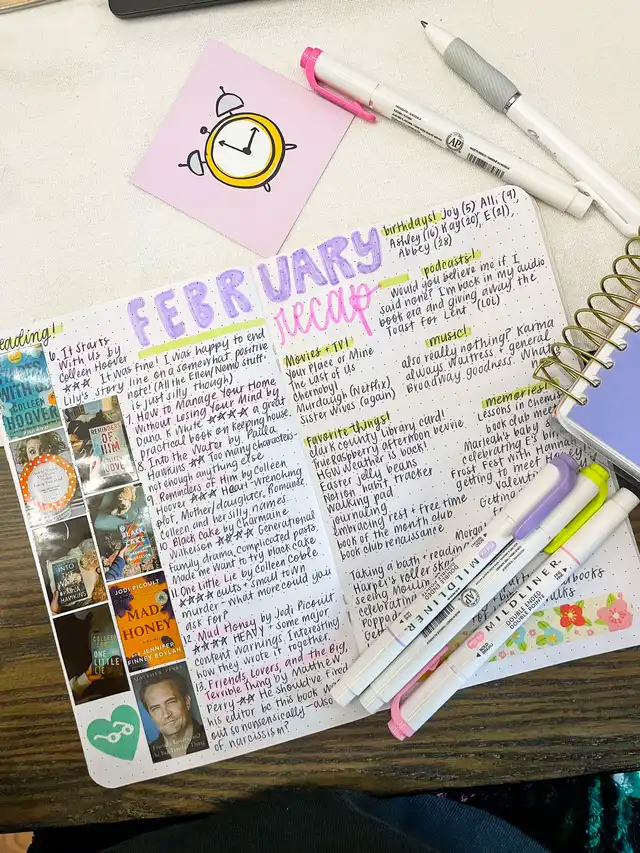 FEBRUARY
recap
reading!
6. It Starts
With Us by
Colleen Hoover
It was fine! I was happy to end
Lily's story line on a somewhat positive
note! (All the Ellen/Nemo stuff
is just silly, though)
7. How to Manage Your Home
Without Losing Your Mind by
Dana K White a great
practical book on keeping house.
8. Into the Water by Paula
Hawkins Too many characters
not enough anything else
9. Reminders of Him by Colleen
Hoover Heart-wrenching
plot, Mother/daughter, Romance,
Colleen and her silly names
10. Black Cake by Charmaine
Wilkerson Generational
Family drama, complicated pasts,
made me want to try black cake
11. One Little Lie by Colleen Coble
cults + small town
murder - what more could you
ask for?
12. Mad Honey by Jodi Picoult
HEAVY + some major
content warnings. Interesting
how they wrote it together.
13. Friends, Lovers, and the Big,
Terrible Thing by Matthew
Perry He should've fired
his editor bc this book
out so nonsensically - also
of narcissism?
COLLEEN HOOVER
REMINDERS OF HIM
INTO THE WATER
PAULA HAWKINS
BLACK CAKE
COLLEEN COBLE
ONE LITTLE LIE
JODI PICOULT
MAD HONEY
JENNIFER FINNEY BOYLAN
MATTHEW PERRY
birthdays! Joy (5) Alli (9),
Ashley (16) Kay (20), E (21),
Abbey (28)
podcasts!
Would you believe me if I
said none? I'm back in my audio
book era and giving away the
Toast for Lent (LOL)
Movies + TV!
Your Place or Mine
The Last of Us
Chernobyl
Murdaugh (Netflix)
Sister Wives (again)
music!
also really nothing? Karma
always, Waitress + general
Broadway goodness.
favorite things!
Clark County library card!
True Raspberry afternoon bevvie
GEN WEATHER is back!
Easter jelly beans
Notion habit tracker
walking pad
journaling
Embracing rest + free time
book of the month club
book club renaissance
memories!
Lessons in
book club
Mariah's baby
celebrating E's
Frost Fest with Hannah
getting to meet
Valentine
Getting
Taking a bath + reading
Harper's roller
celebrating
MILDLINER
MILDLINER
DOUBLE ENDED
AP